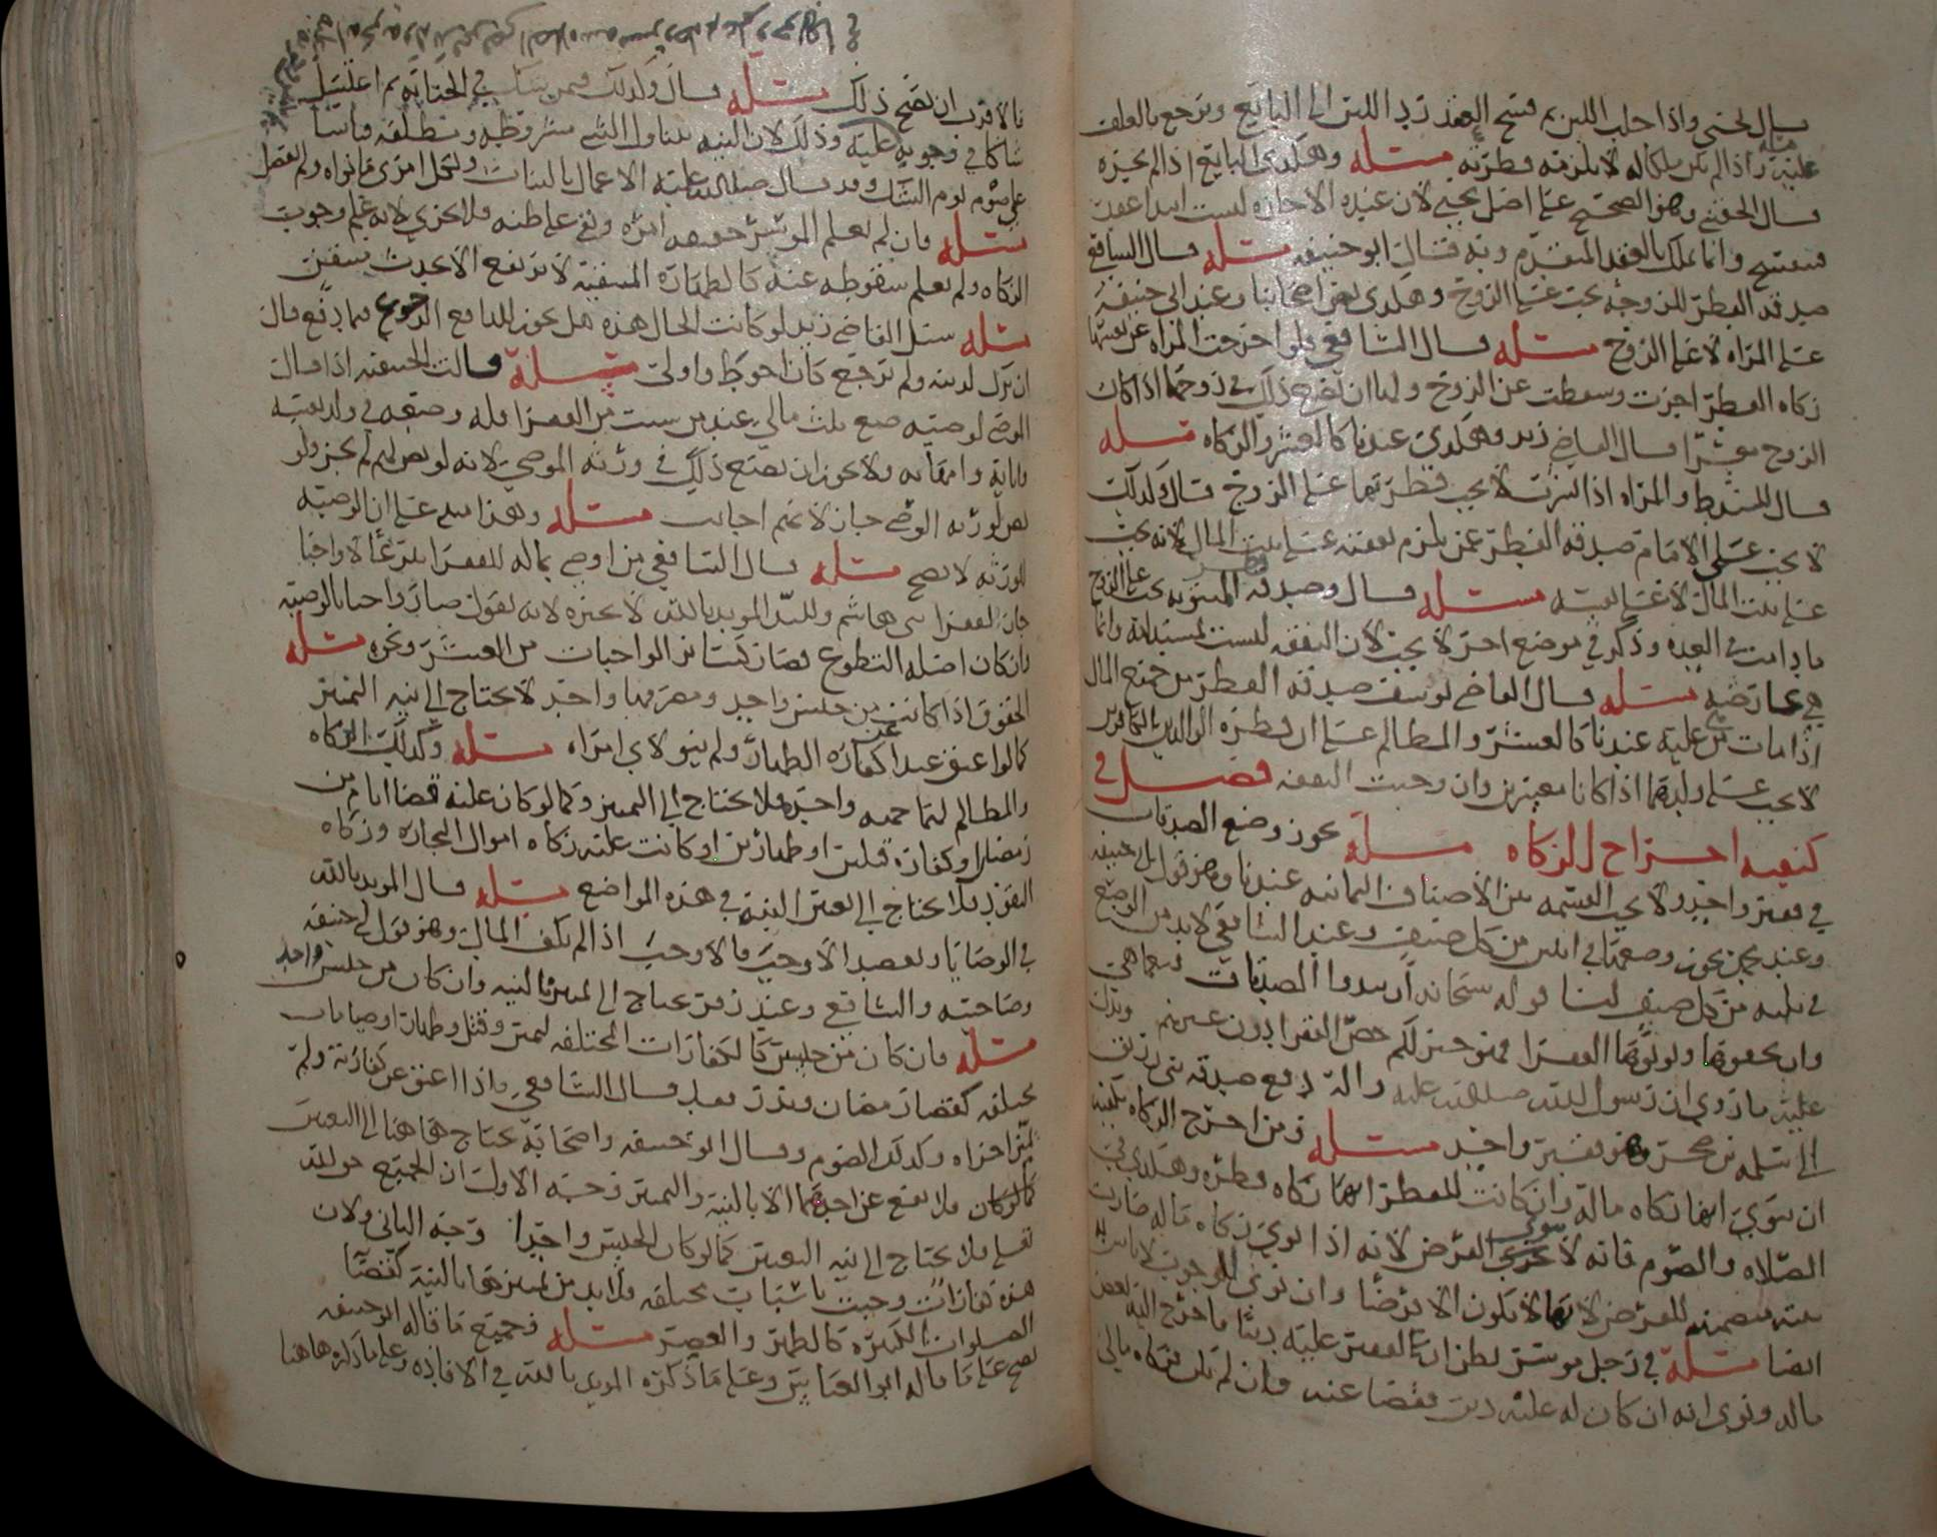 قال يحيى واذا حلب اللبن ثم فسخ العقد رد اللبن الى البايع ويرجع بالعلف
عليه واذا لم يكن ملكا له لا يلزمه فطرته مسئلة وهكذى البايع اذا لم يجزه
قال الحقيني وهو الصحيح على اصل يحيى لان عنده الاجازة ليست ابتدا عقد
فتستتبع وانما يملك بالعقد المتقدم وبه قال ابو حنيفه مسئله قال الشافعي
صدقه الفطر للزوجه يجب على الزوج وهكذى بعض اصحابنا وعند ابي حنيفة
على المراه لا على الزوج مسئله قال الشافعي فلو اخرجت المراه عن نفسها
زكاه الفطر اجزت وسقطت عن الزوج ولها ان تخرج ذلك في زوجها اذا كان
الزوج معسرا قال القاضي زيد وهكذى عندنا كالعشر والزكاه مسئله
قال المتوسط والمراه اذا نشزت لا يجب فطرتها على الزوج قال وكذلك
لا يجب على الامام صدقه الفطر عمن يلزم نفقته على بيت المال لانه يجب
على بيت المال لا على نفسه مسئله قال وصدقه المبتوته يجب على الزوج
ما دامت في العده وذكر في موضع اخر لا يجب لان النفقه ليست لمستدامة وانما
هي عارضه مسئله قال القاضي يوسف صدقه الفطر من جميع المال
اذا مات من عليه عندنا كالعشر والمظالم على ان فطره الوالدين الكافرين
لا يجب على ولدهما اذا كانا معسرين وان وجبت النفقه فصل في
كيفيه اخراج الزكاه مسئله يجوز وضع الصدقات
في فقير واحد ولا يجب القسمه بين الاصناف الثمانيه عندنا وهو قول ابي حنيفه
وعند يحيى يجوز وضعها في اثنين من كل صنف وعند الشافعي لا بد من الوضع
في ثلثه من كل صنف لنا قوله سبحانه ان تبدوا الصدقات فنعما هي
وان تخفوها وتوتوها الفقرا فهو خير لكم خص الفقرا دون غيرهم ويدل
عليه ما روي ان رسول الله صلى الله عليه واله دفع صدقه بني زريق
الى سلمه بن صخر وهو فقير واحد مسئله ومن اخرج الزكاه يكفيه
ان ينوي انها زكاه ماله وان كانت للفطر انها زكاه فطره وهكذى في
الصلاه والصوم فانه لا ينوي الفرض لانه اذا نوي زكاه ماله صارت
نيته متضمنه للفرض لانها لا تكون الا فرضا وان نوى الوجوب لا باس
ايضا مسئلة في رجل موسر يظن ان على الفقير عليه دينا ما خرج اليه بعض
ماله ونوى انه ان كان له عليه دين فقضا عنه وان لم يكن فزكاه مالي
فالاقرب ان يصح ذلك مسئله قال وكذلك فيمن يشك في الجنابه ثم اغتسل
شاكا في وجوبه عليه وذلك لان النيه يتناول الشي مشروطه ومطلقه قياسا
على صوم يوم الشك وقد قال صلى الله عليه الاعمال بالنيات ولكل امرئ ما نواه ولم يفصل
مسئله فان لم يعلم الموسر حقيقه امره وبقي على ظنه فلا يجزي لانه علم وجوب
الزكاه ولم يعلم سقوطه عنه كالطهارة المتيقنة لا ترتفع الا بحدث متيقن
مسئله سئل القاضي زيد لو كانت الحال هذه هل يجوز للدافع الرجوع فيما دفع قال
ان ترك لدينه ولم يرجع كان احوط واولى مسئلة قالت الحنفيه اذا قال
الوصي لوصيه ضع ثلث مالي عند من شيت من الفقرا فله وضعه في ولد نفسه
وابايه وامهاته ولا يجوز ان يضع ذلك في ورثه الموصي لانه لو نص لهم لم يجز ولو
نص لورثه الوصي جاز لانهم اجانب مسئله وهذا مبني على ان الوصيه
للورثه لا تصح مسئله قال الشافعي من اوصى بماله للفقرا تبرعا لا واجبا
جاز الفقرا بني هاشم وللسيد المويد بالله لا يجيزه لانه يقول صار واجبا بالوصيه
وان كان اصله التطوع فصار كساير الواجبات من العشر ونحوه مسئله
الحقوق اذا كانت من جنس واحد ومصرفها واحد لا يحتاج الى نيه التمييز
كما لو اعتق عبدا عن كفاره الظهار ولم ينو لاي امراه مسئله وكذلك الزكاه
والمظالم لهما جهه واحده فلا يحتاج الى التمييز وكما لو كان عليه قضا ايام من
رمضان او كفاره قتلين او ظهارين او كانت عليه زكاه اموال التجاره وزكاه
النقود فلا يحتاج الى تعيين النيه في هذه المواضع مسئله قال المويد بالله
في الوصايا ويقصد الاوجب فالاوجب اذا لم يكف المال وهو قول ابي حنيفه
وصاحبيه والشافعي وعند زفر يحتاج الى تمييز بالنيه وان كان من جنس واحد
مسئله وان كان من جنس كالكفارات المختلفه ليمين وقتل وظهار او صيامات
مختلفه كقضا رمضان ونذر فقد قال الشافعي واذا اعتق عن كفارته ولم
يعين اجزاه وكذلك الصوم وقال ابو حنيفه واصحابه يحتاج هاهنا الى التعيين
كما لو كان فلا يقع عن احدهما الا بالنيه والتمييز وجه الاول ان الجميع حق لله
تعالى فلا يحتاج الى نيه التعيين كما لو كان الجنس واحدا وجه الثاني ولان
هذه كفارات وجبت باسباب مختلفه فلا بد من تمييزها بالنية كقضا
الصلوات الكثيره كالظهر والعصر مسئله وجميع ما قاله ابو حنيفه
يصح على ما قاله ابو العباس وعلى ما ذكره المويد بالله في الافاده وعلى ما ذكره هاهنا